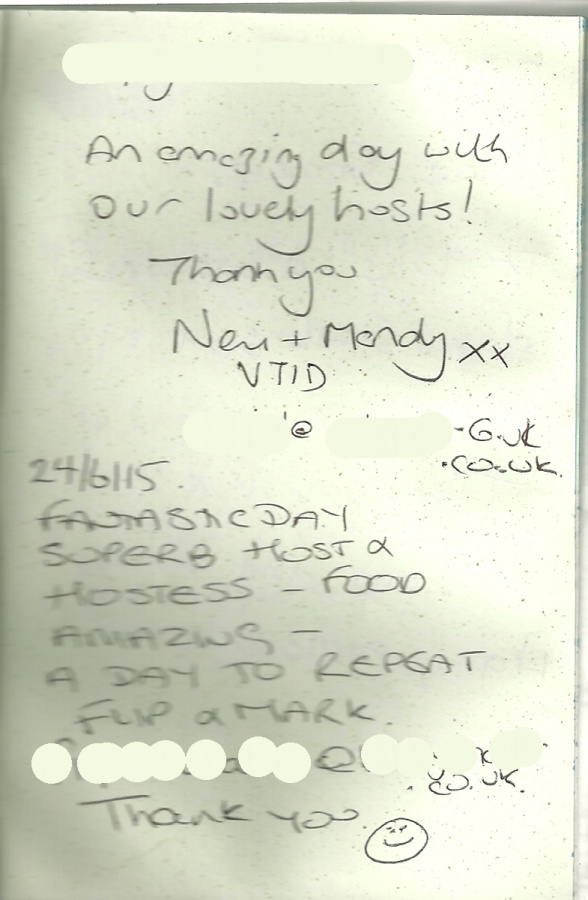 An amazing day with
our lovely hosts!
Thank you
+ Mandy xx
VTID
@ -G.uk
.co.uk.
24/6/15.
FANTASTIC DAY
SUPERB HOST &
HOSTESS - FOOD
AMAZING -
A DAY TO REPEAT
FLIP & MARK.
@
co.uk.
Thank you.